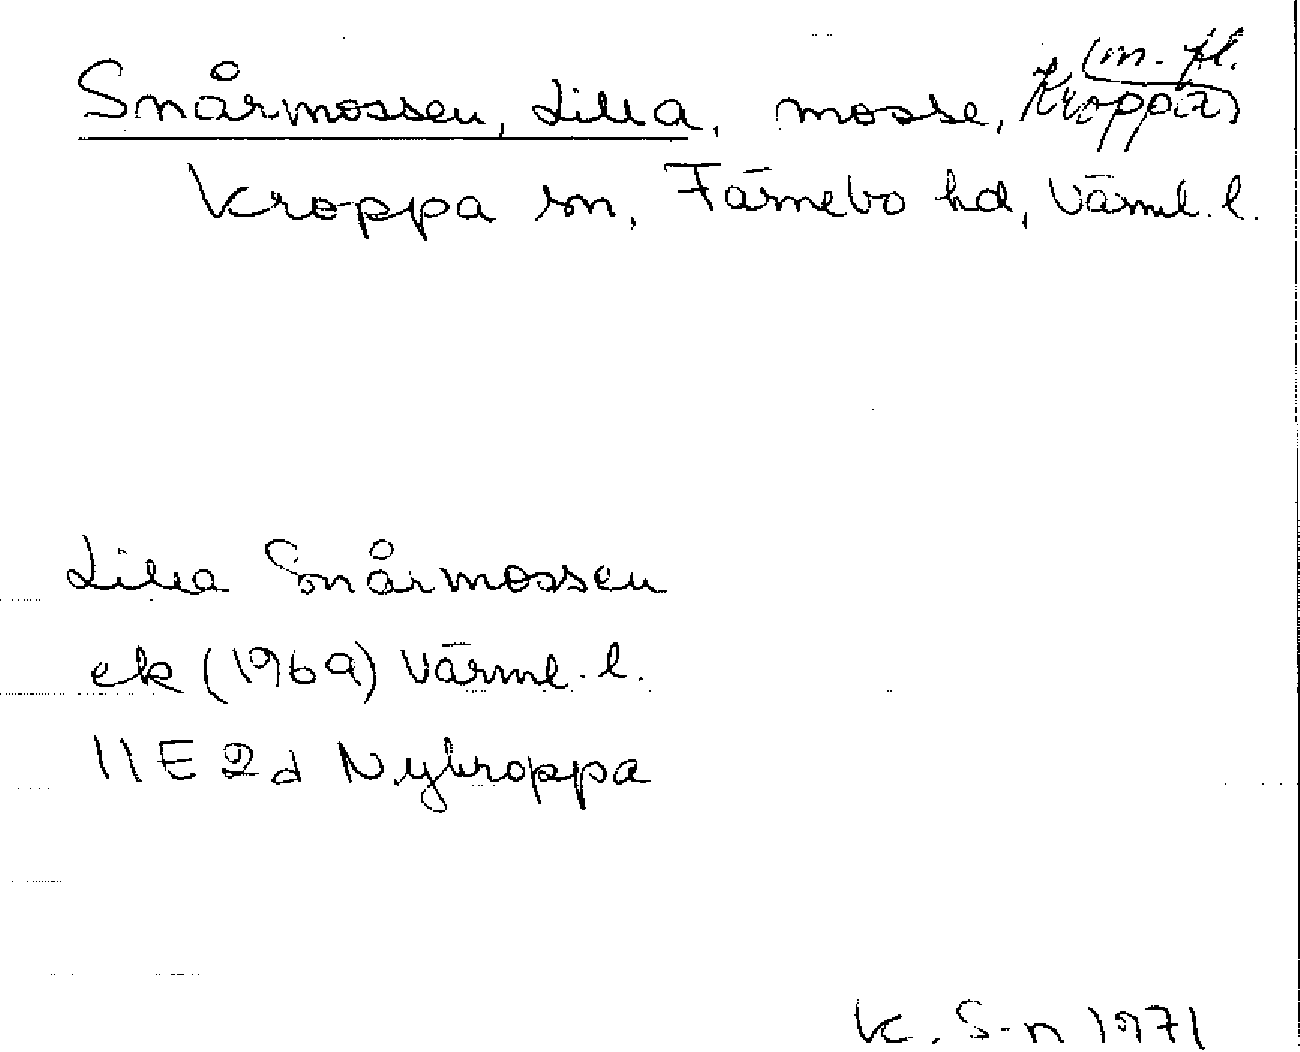 Snårmossen, Lilla, mosse, Kroppa (m. fl.
Kroppa sn, Färnebo hd, Värml. l.
Lilla Snårmossen
ek (1969) Värml. l.
11E 2d Nykroppa
K. S-n 1971